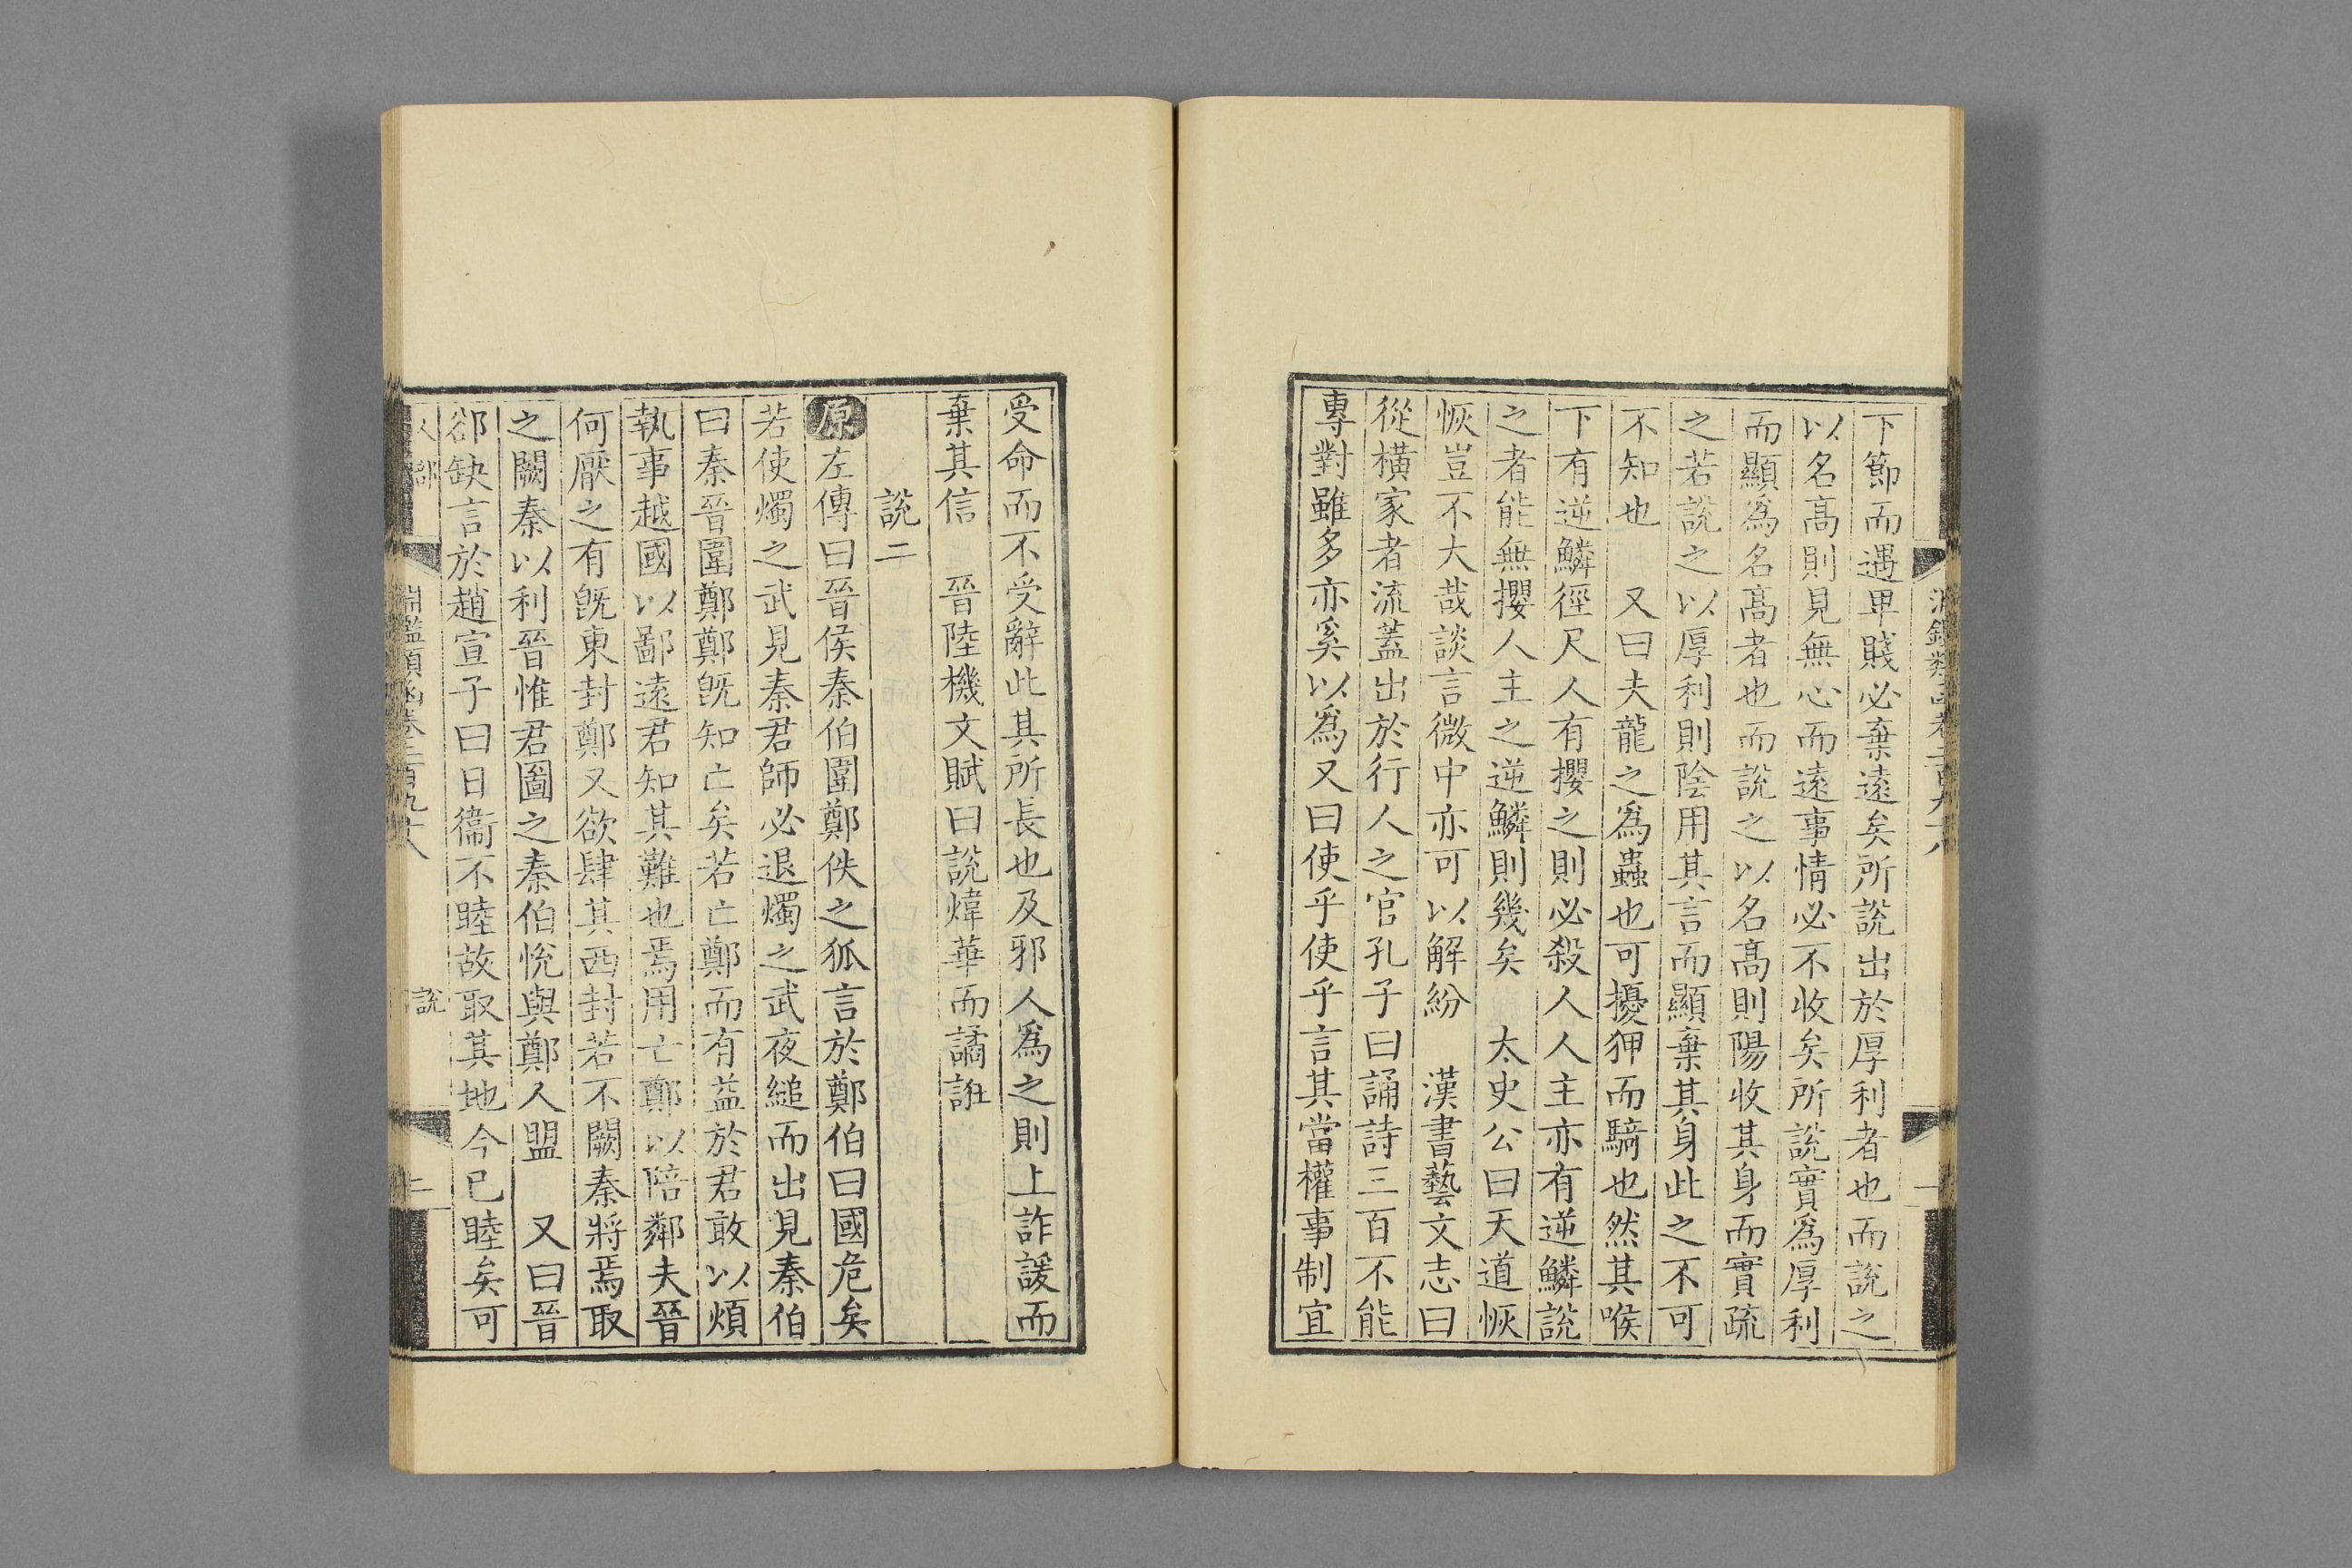 下節而遇卑賤必棄遠矣所說出於厚利者也而說之
以名高則見無心而遠事情必不收矣所說實爲厚利
而顯爲名高者也而說之以名高則陽收其身而實疏
之若說之以厚利則陰用其言而顯棄其身此之不可
不知也　又曰夫龍之爲蟲也可擾狎而騎也然其喉
下有逆鱗徑尺人有攖之則必殺人人主亦有逆鱗說
之者能無攖人主之逆鱗則幾矣　太史公曰天道恢
恢豈不大哉談言微中亦可以解紛　漢書藝文志曰
從橫家者流蓋出於行人之官孔子曰誦詩三百不能
專對雖多亦奚以爲又曰使乎使乎言其當權事制宜
受命而不受辭此其所長也及邪人爲之則上詐諼而
棄其信　晉陸機文賦曰說煒華而譎誑
說二
原左傳曰晉侯秦伯圍鄭佚之狐言於鄭伯曰國危矣
若使燭之武見秦君師必退燭之武夜縋而出見秦伯
曰秦晉圍鄭鄭旣知亡矣若亡鄭而有益於君敢以煩
執事越國以鄙遠君知其難也焉用亡鄭以陪鄰夫晉
何厭之有旣東封鄭又欲肆其西封若不闕秦將焉取
之闕秦以利晉惟君圖之秦伯悅與鄭人盟　又曰晉
郤缺言於趙宣子曰日衞不睦故取其地今已睦矣可
淵鑑類函卷二百九十八
說
二